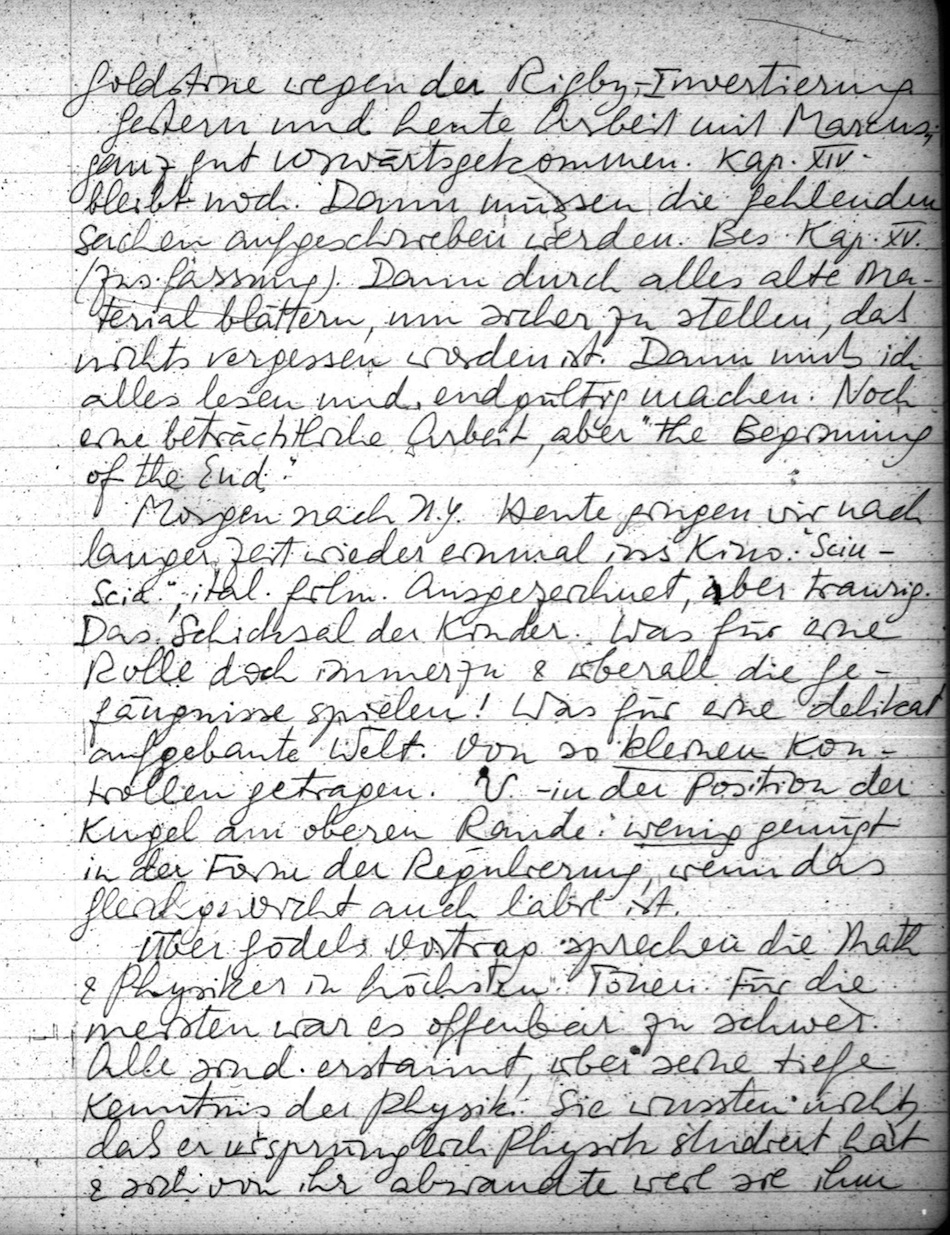 Goldstine wegen der Rigby-Invertierung
Gestern und heute Arbeit mit Marcus,
ganz gut vorwärtsgekommen. Kap. XIV.
bleibt noch. Dann müssen die fehlenden
Sachen aufgeschrieben werden. Bes. Kap. XV.
(Zus.fassung). Dann durch alles alte Ma-
terial blättern, um sicher zu stellen, daß
nichts vergessen worden ist. Dann muß ich
alles lesen und endgültig machen. Noch
eine beträchtliche Arbeit, aber "the Beginning
of the End."
Morgen nach N.Y. Heute gingen wir nach
langer Zeit wieder einmal ins Kino. "Sciu-
Scia", ital. Film. Ausgezeichnet, aber traurig.
Das Schicksal der Kinder. Was für eine
Rolle doch immerzu & überall die Ge-
fängnisse spielen! Was für eine delikat
aufgebaute Welt. Von so kleinen Kon-
trollen getragen. V. - in der Position der
Kugel am oberen Rande: wenig genügt
in der Form der Regulierung, wenn das
Gleichgewicht auch labil ist.
Über Gödels Vortrag sprechen die Math
& Physiker in höchsten Tönen. Für die
meisten war es offenbar zu schwer.
Alle sind erstaunt, über seine tiefe
Kenntnis der Physik. Sie wussten nicht,
daß er ursprünglich Physik studiert hat
& sich von ihr abwandte weil sie ihm